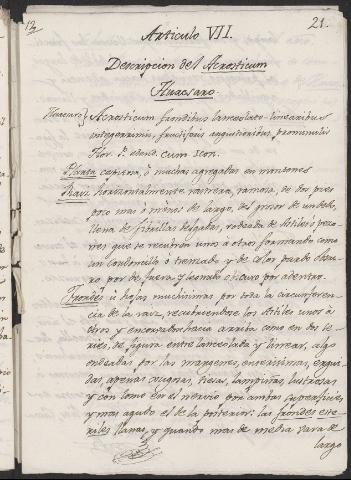 12
21.
Articulo VII.
Descripcion del Acrosticum
Huacsaro.
Huacsaro} Acrosticum frondibus lanceolato-linearibus
integerrimis, fructiferis angustioribus, prominulis
Flor. P. ined. cum Icon.
Planta casera, ó muchas agregadas en montones
Raiz horizontalmente rastrera, ramosa, de dos pies
poco mas ó ménos de largo, del grosor de un dedo,
llena de fibrillas delgadas, rodeada de Astiles
nes que se recubren unos a otros formando como
un cordoncillo ó trenzado y de color pardo obscu-
ro por de fuera y leonado obscuro por adentro.
Frondes ú hojas muchisimas por toda la circunferen-
cia de la raiz, recubriendose los Astiles unos á
otros y encorvados hacia arriba como en dos se-
ries, de figura entre lanceolada y linear, algo
ondeadas por las margenes, enterisimas, ergui-
das, apenas rugosas, tiesas, lampiñas lustrosas
y con lomo en el nervio por ambas superficies,
y mas agudo el de la posterior: las frondes este-
riles llanas, y quando mas de media vara de
largo